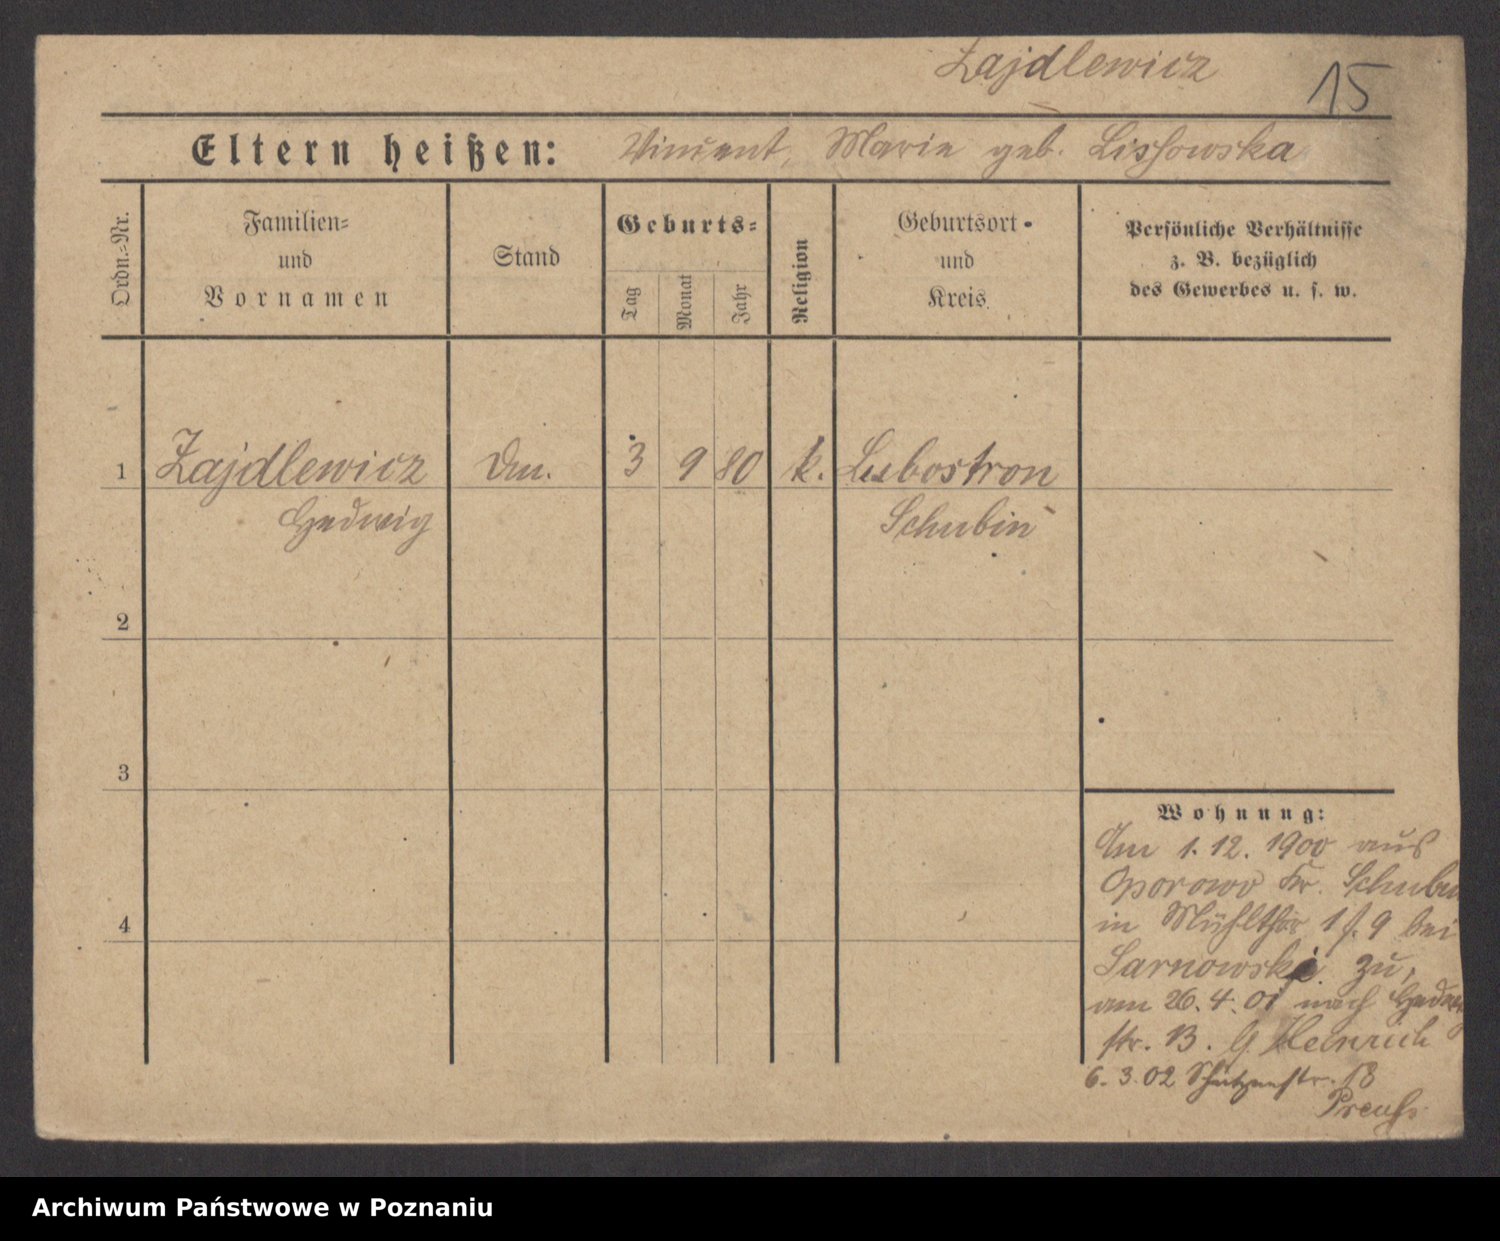 Zajdlewicz 15
Eltern heißen: Vincent, Marie geb. Lissowska
Ordn.-Nr.
Familien-
und
Vornamen
Stand
Geburts-
Tag
Monat
Jahr
Religion
Geburtsort-
und
Kreis
Persönliche Verhältnisse
z. B. bezüglich
des Gewerbes u. s. w.
1 Zajdlewicz 3 9 80 k. Lubostron
Hedwig Schubin
2
3
4
Wohnung:
Am 1.12. 1900 aus
Oporowo Kr. Schubin
in Mühlthor 1 f. 9 bei
Sarnowski zu,
am 26.4.01 nach
str. 13. G. Heinrich
6.3.02 Schützenstr. 18
Preuss
Archiwum Państwowe w Poznaniu